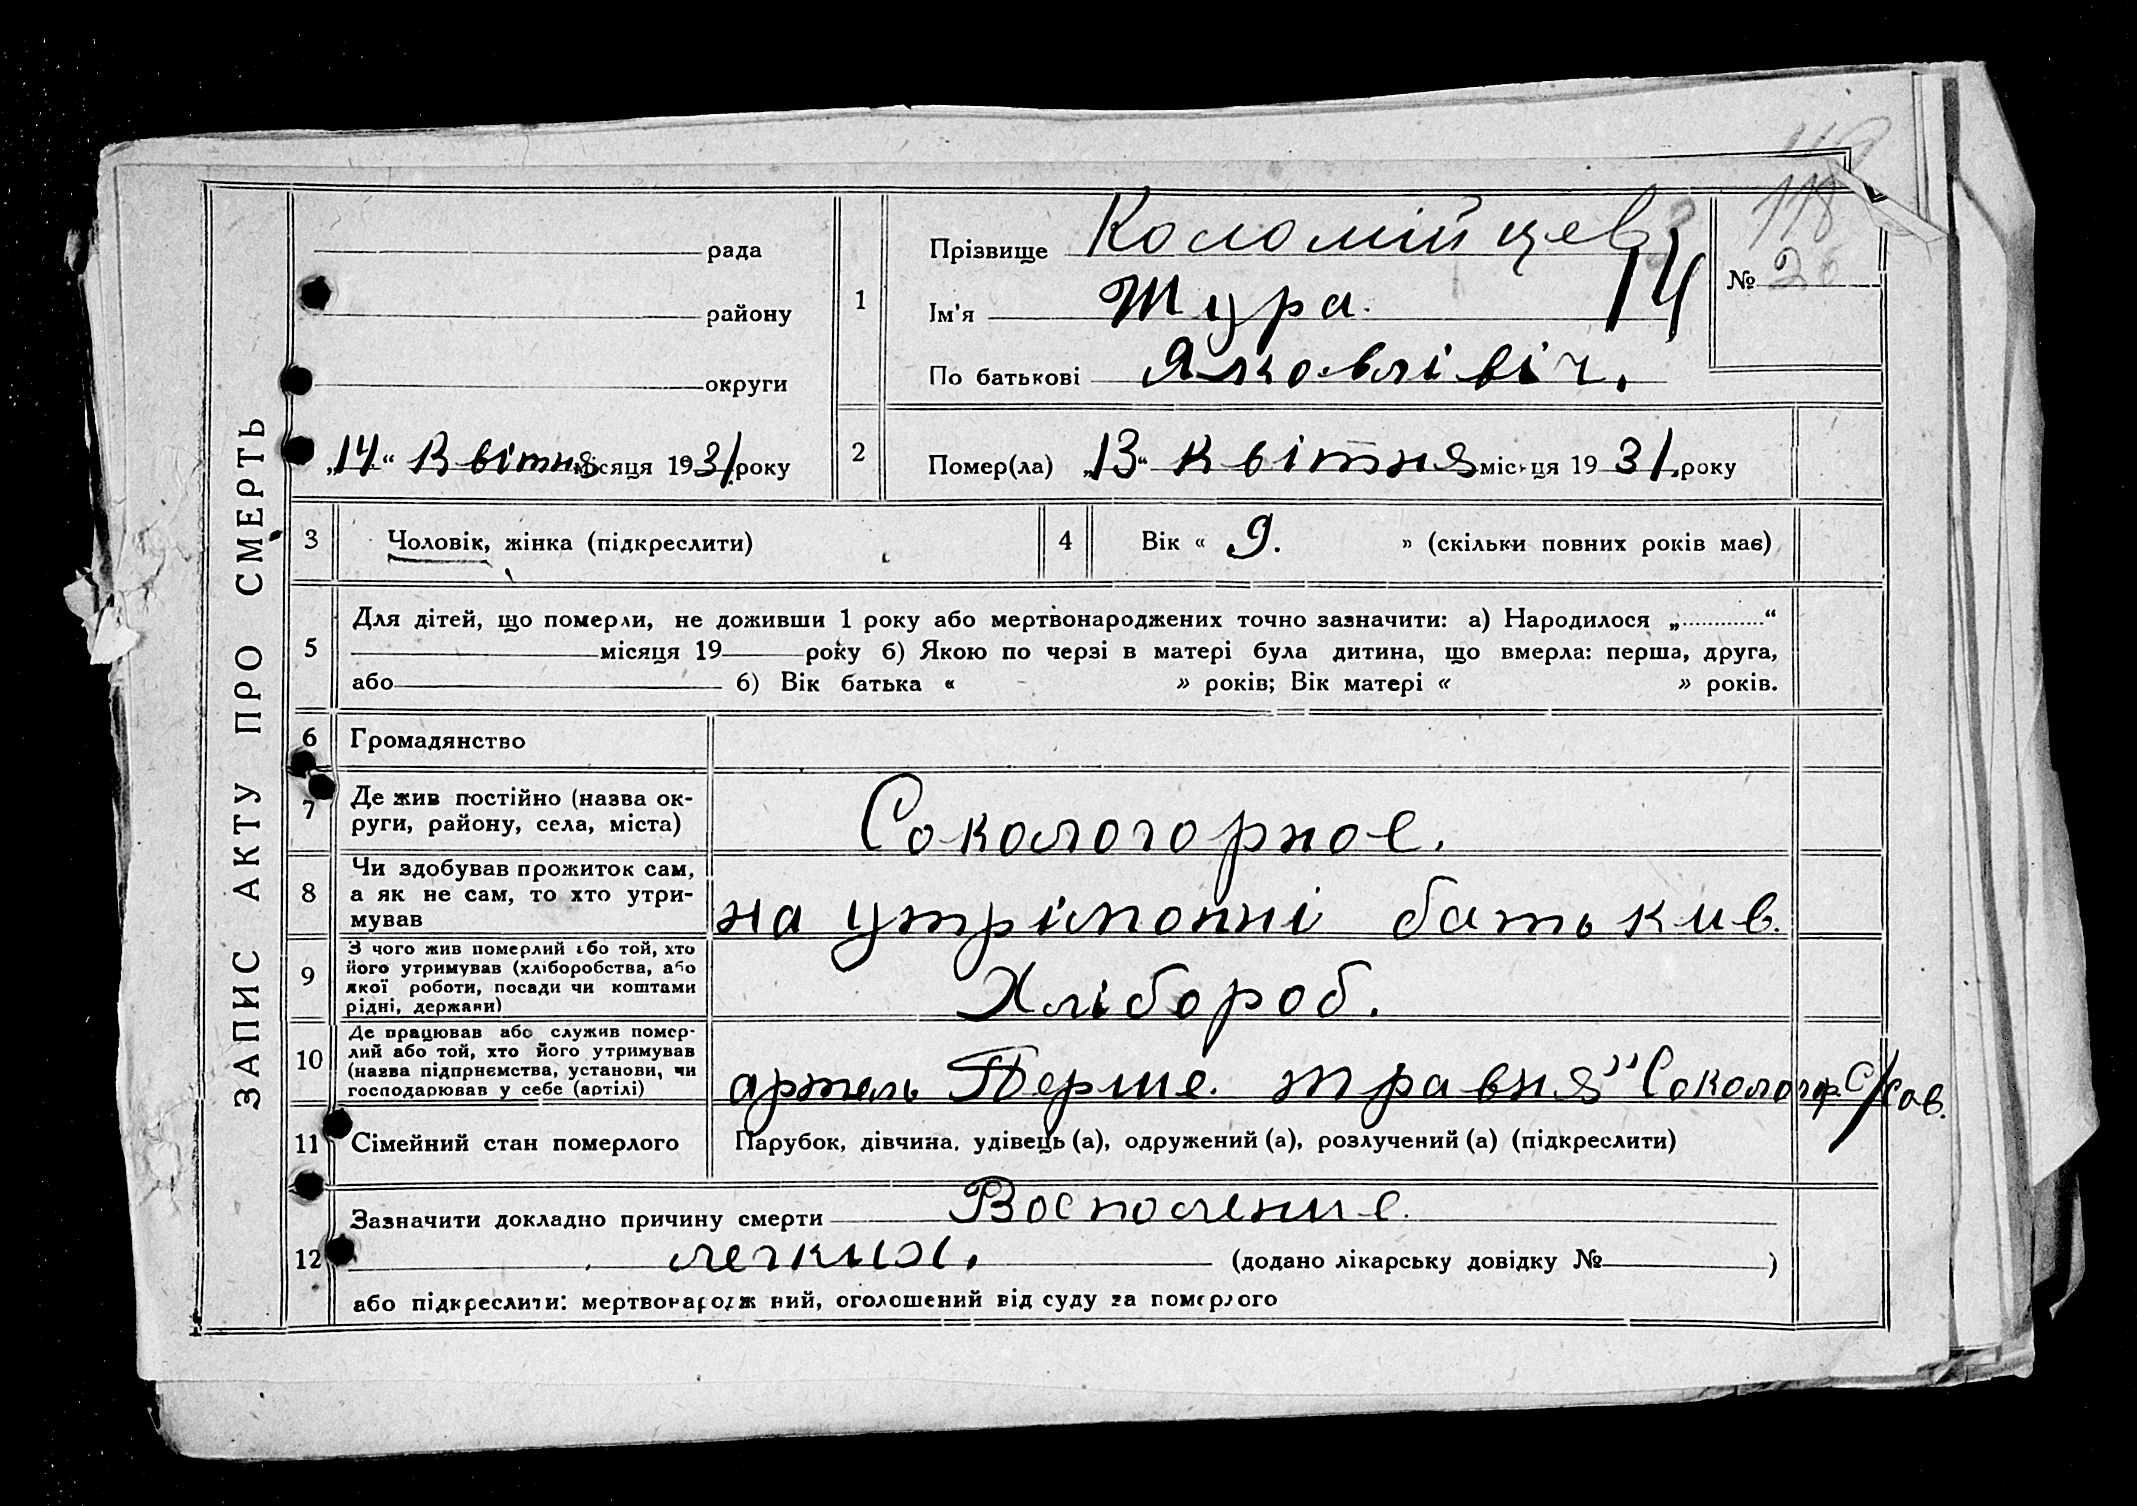 ЗАПИС АКТУ ПРО СМЕРТЬ
118
рада
району
округи
„14“ Квітня місяця 1931. року
1
Прізвище Коломійцев
Ім'я Жура.
14
По батькові Яковлівіч.
№ 20
2
Помер(ла) „13“ Квітня місяця 1931. року
3 Чоловік, жінка (підкреслити)
4 Вік « 9. » (скільки повних років має)
5
Для дітей, що померли, не доживши 1 року або мертвонароджених точно зазначити: а) Народилося „ “
місяця 19 року б) Якою по черзі в матері була дитина, що вмерла: перша, друга,
або б) Вік батька « » років; Вік матері « » років.
6 Громадянство
7 Де жив постійно (назва ок-
руги, району, села, міста)
Сокологорное.
8 Чи здобував прожиток сам,
а як не сам, то хто утри-
мував
на утріманні батьки в.
9 З чого жив померлий або той, хто
його утримував (хліборобства, або
якої роботи, посади чи коштами
рідні, держави)
Хлібороб.
10 Де працював або служив помер-
лий або той, хто його утримував
(назва підприємства, установи, чи
господарював у себе (артілі)
артель Перше. травня" Сокологор. С/Сов.
11 Сімейний стан померлого
Парубок, дівчина, удівець (а), одружений (а), розлучений (а) (підкреслити)
12
Зазначити докладно причину смерти Восполение.
легких. (додано лікарську довідку № )
або підкреслити: мертвонародж ний, оголошений від суду за померлого